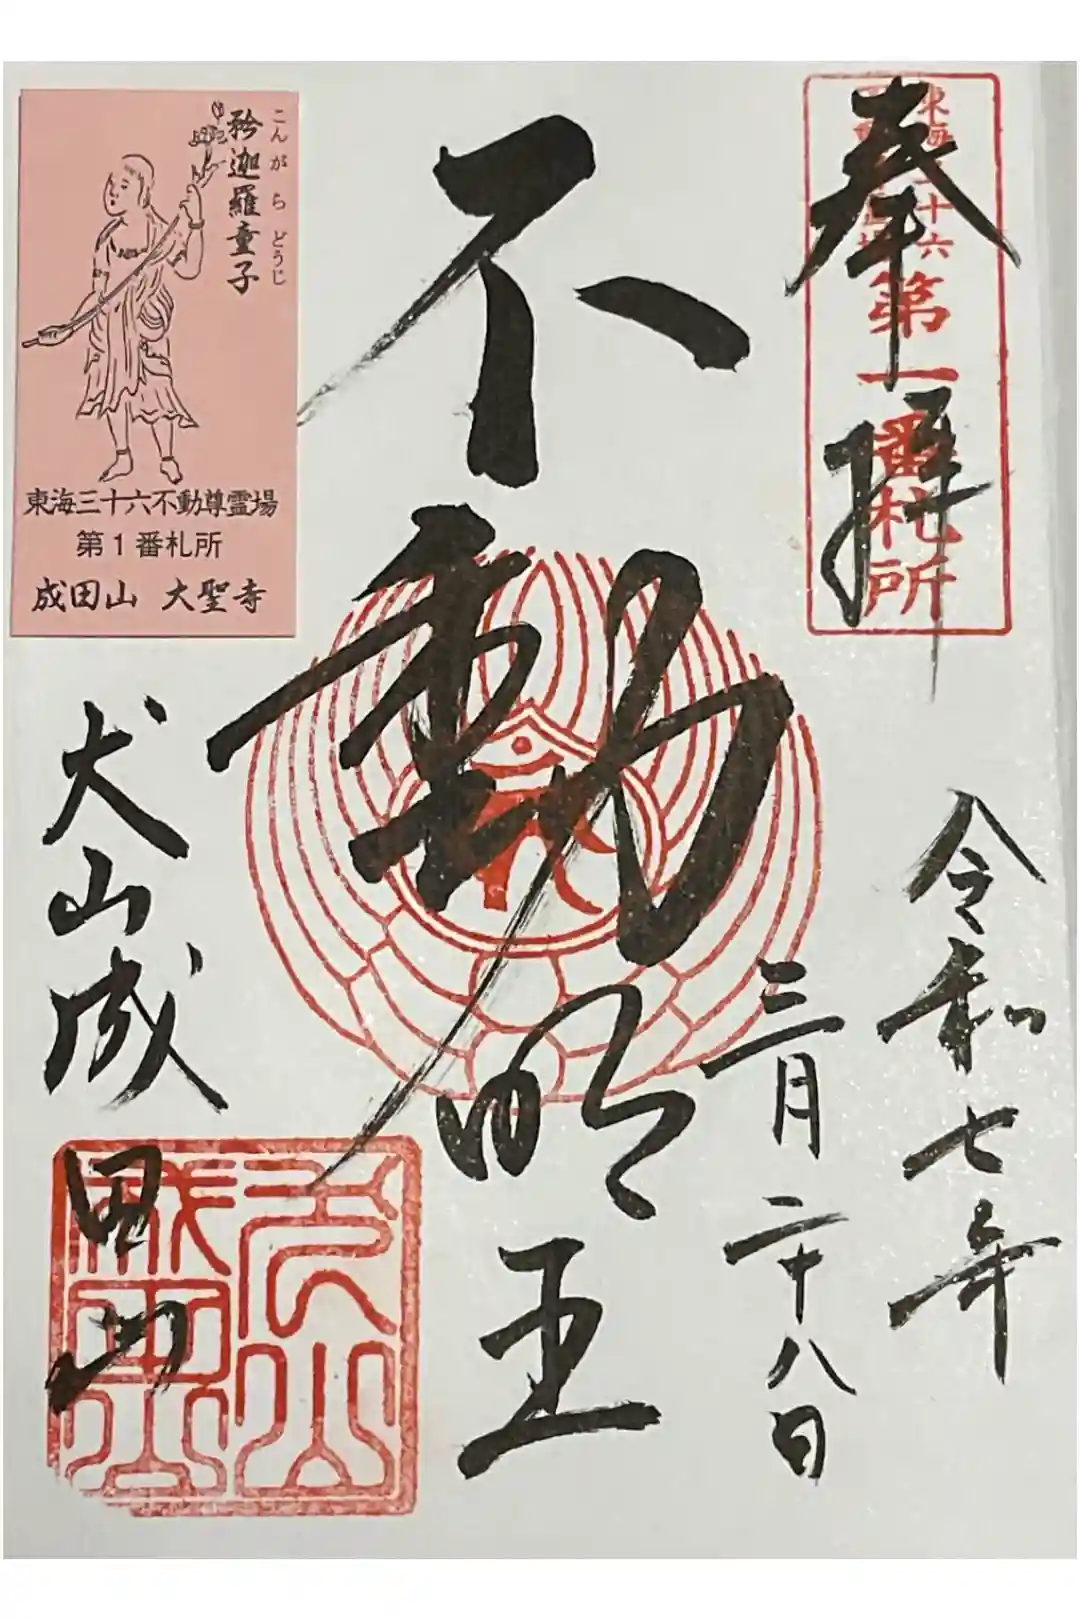 奉拝
東海三十六
第一番札所
令和七年
三月二十八日
不動明王
犬山成田山
こんがらどうじ
矜迦羅童子
東海三十六不動尊霊場
第1番札所
成田山 大聖寺
犬山
成田山